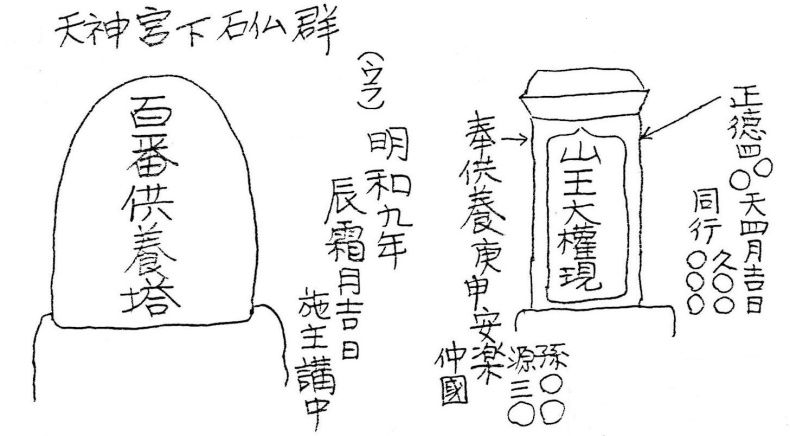 天神宮下石仏群
百番供養塔
(ウラ)
明和九年
辰霜月吉日
施主講中
正徳四〇〇天四月吉日
久〇〇
同行〇〇〇
山王大權現
奉供養庚申安楽
孫〇〇
源三〇
仲國